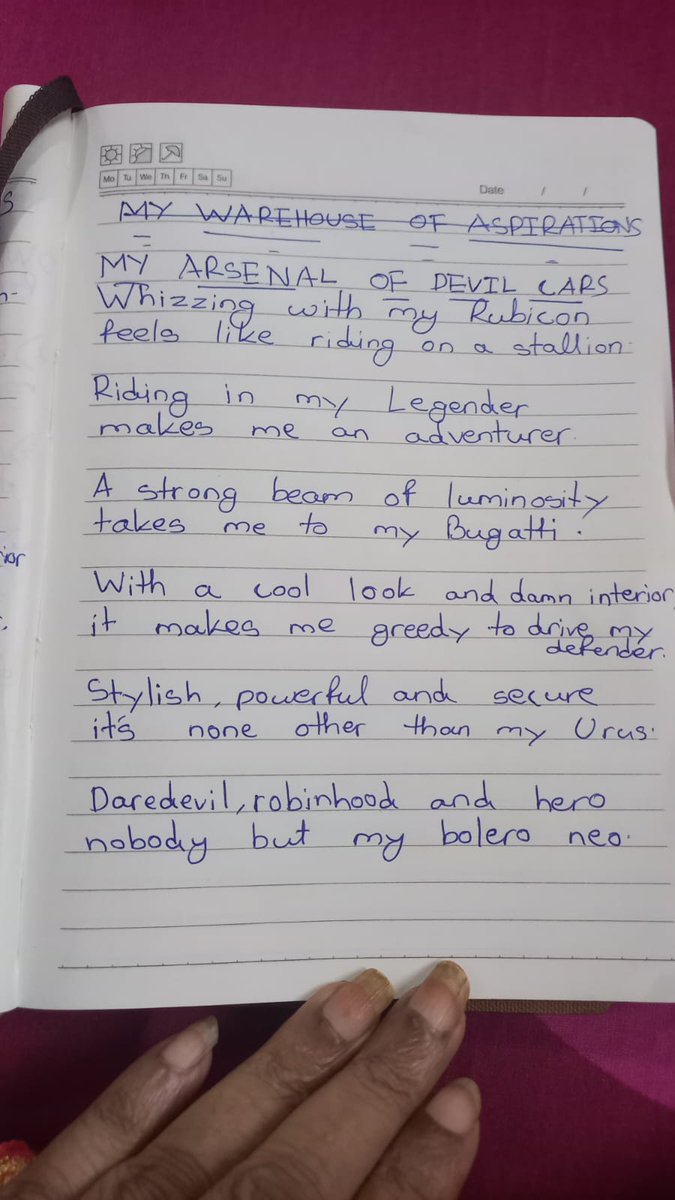 Mo Tu We Th Fr Sa Su
Date / /
MY WAREHOUSE OF ASPIRATIONS
MY ARSENAL OF DEVIL CARS
Whizzing with my Rubicon
feels like riding on a stallion.
Riding in my Legender
makes me an adventurer.
A strong beam of luminosity
takes me to my Bugatti.
With a cool look and damn interior,
it makes me greedy to drive my
defender.
Stylish, powerful and secure
it's none other than my Urus.
Daredevil, robinhood and hero
nobody but my bolero neo.